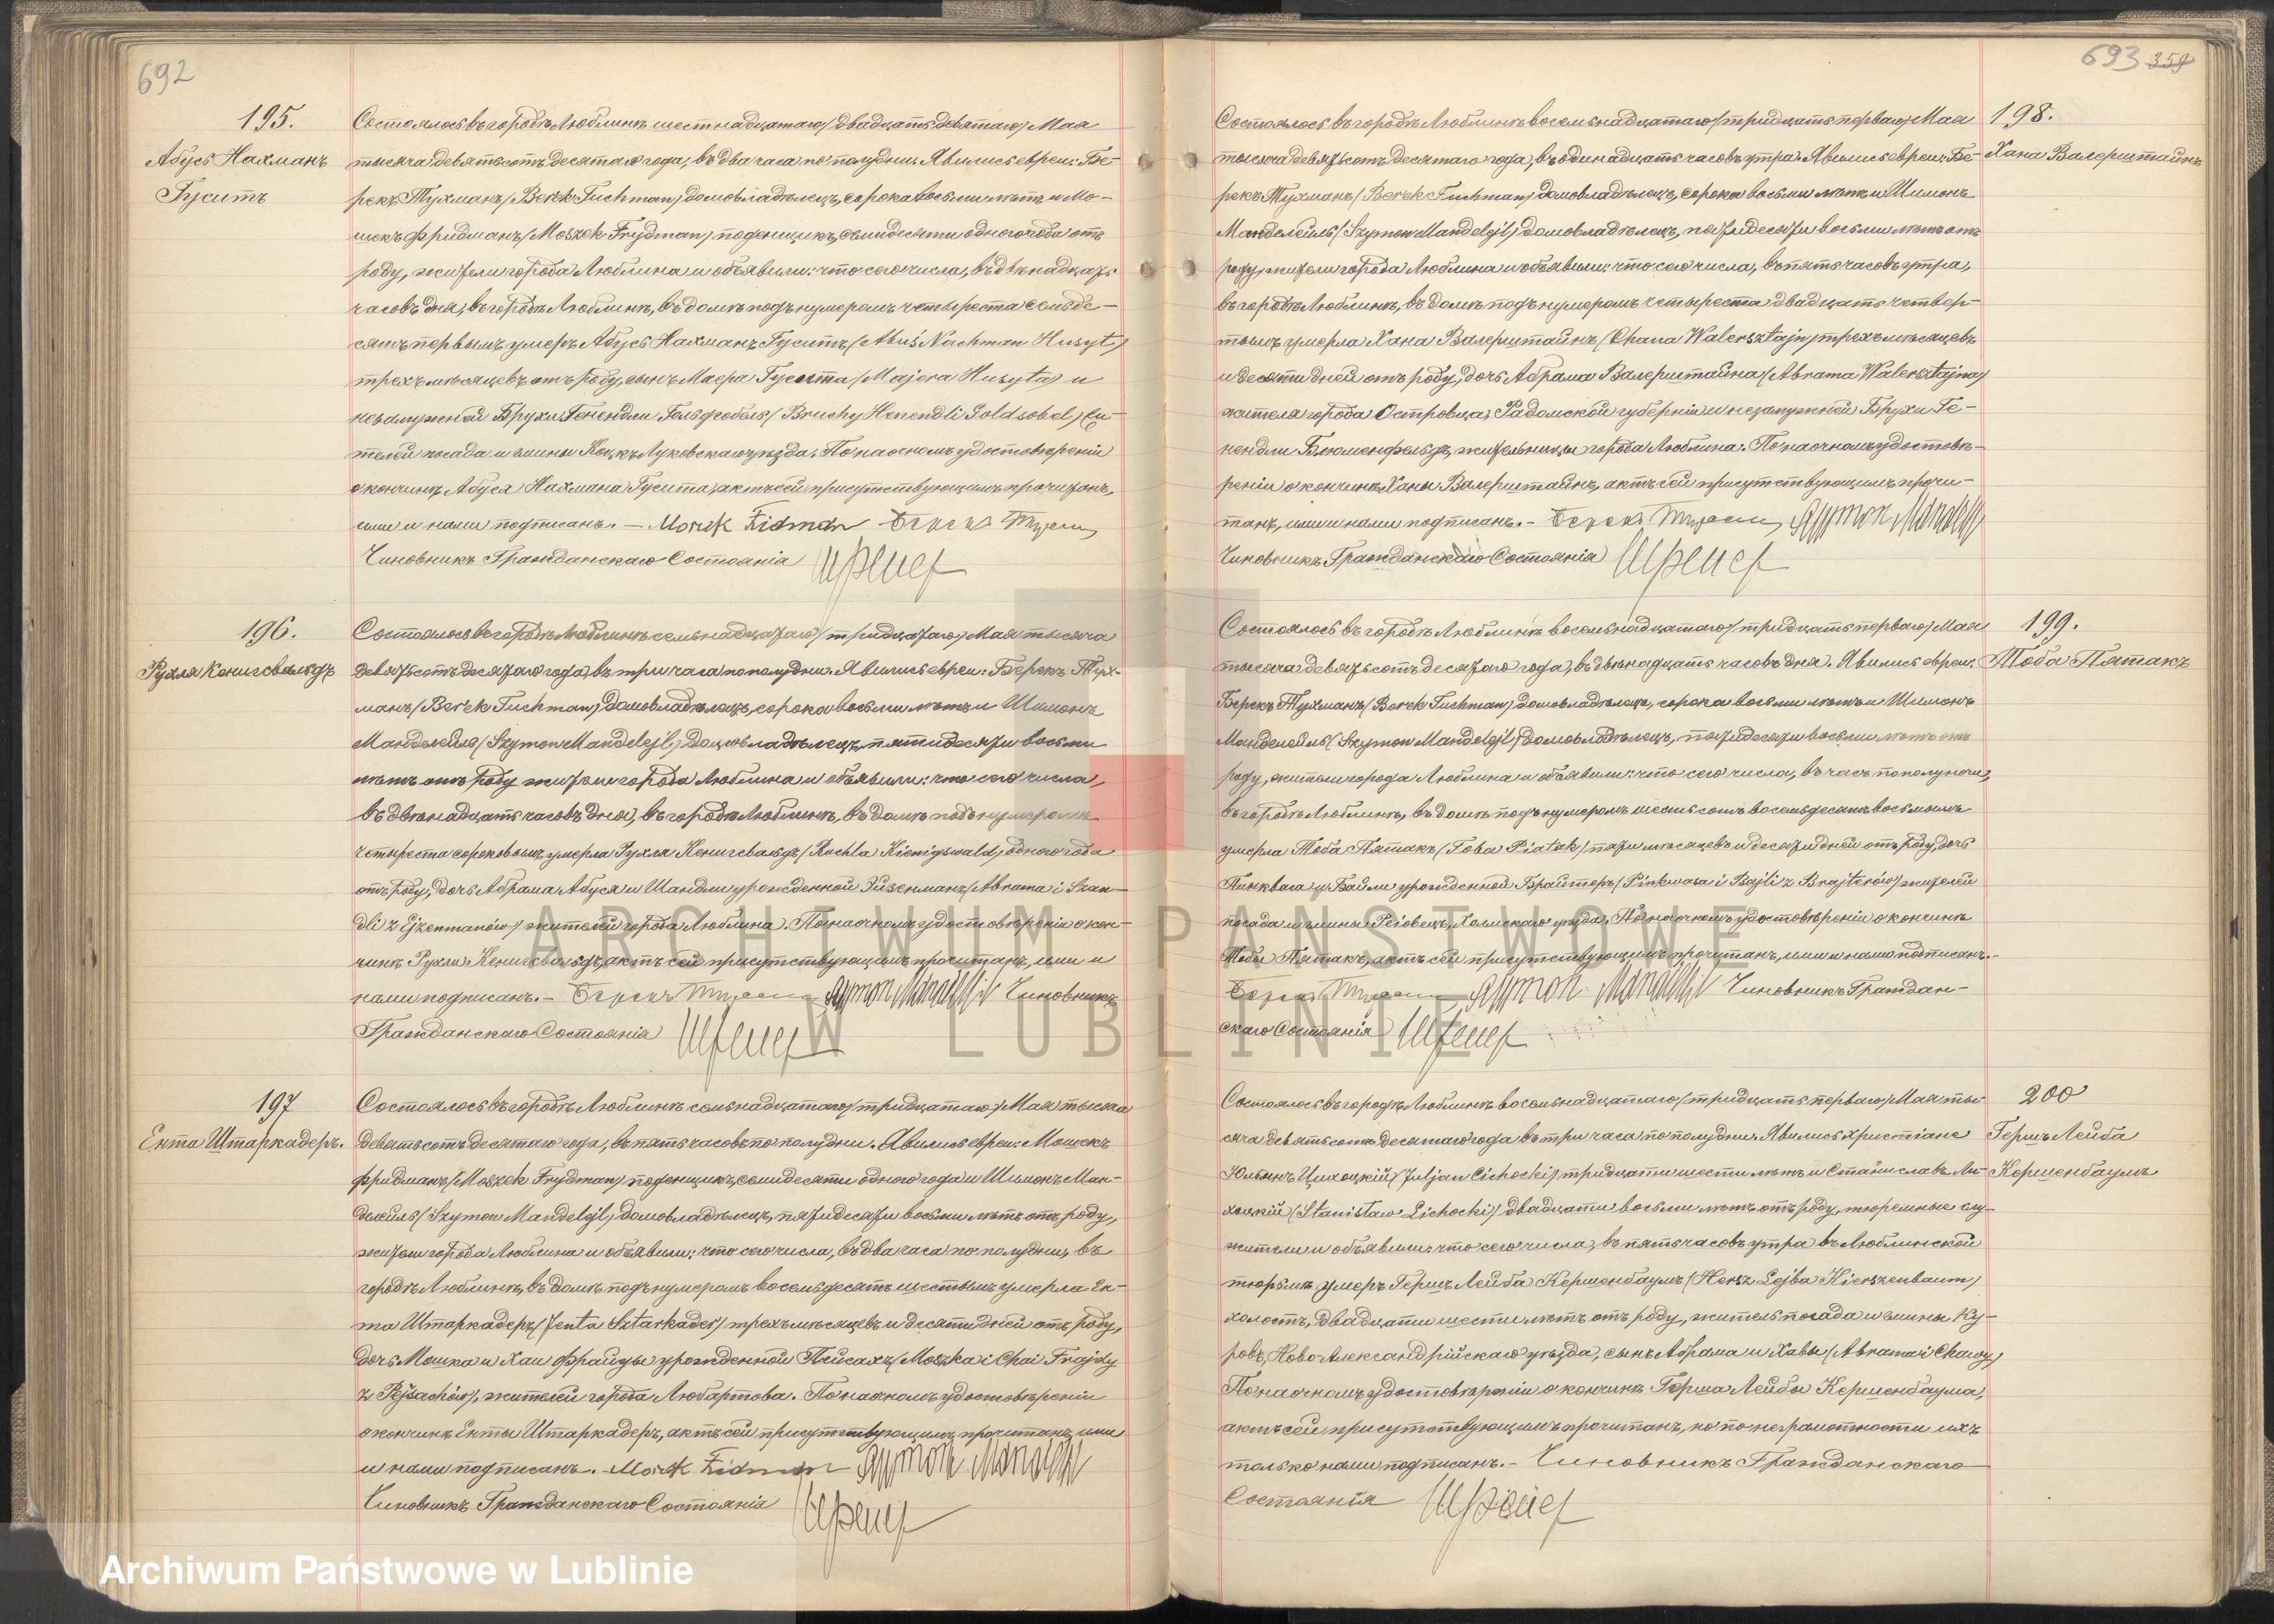 692
195.
Абусъ Нахманъ
Гуситъ
Состоялось въ городѣ Люблинѣ шестнадцатаго/двадцать девятаго/ Мая
тысяча девятьсотъ десятаго года, въ два часа по полудни. Явились евреи: Бе-
рекъ Тухманъ/Berek Tuchman/ домовладѣлецъ, сорока восьми лѣтъ и Мо-
шекъ Фридманъ/Moszek Frydman/ поденщикъ, семидесяти одного года отъ
роду, жители города Люблина и объявили: что сего числа, въ двѣнадцать
часовъ дня, въ городѣ Люблинѣ, въ домѣ подъ нумеромъ четыреста семьде-
сятъ первымъ умеръ Абусь Нахманъ Гуситъ/Abuś Nachman Husyt/
трехъ мѣсяцевъ отъ роду, сынъ Маера Гусита/Majera Husyta/ и
незамужней Брухи Генендли Гольдзобель/Bruchy Henendli Goldsobel/ жи-
телей посада и гмины Коцкъ Луковскаго уѣзда. По наочномъ удостовѣреніи
о кончинѣ Абуся Нахмана Гусита, актъ сей присутствующимъ прочитанъ,
ими и нами подписанъ. —
Чиновникъ Гражданскаго Состоянія
196.
Рухля Кенигсвальдъ
Состоялось въ городѣ Люблинѣ семьнадцатаго/тридцатаго/ Мая тысяча
девятьсотъ десятаго года, въ три часа по полудни. Явились евреи: Берекъ Тух-
манъ/Berek Tuchman/ домовладѣлецъ, сорока восьми лѣтъ и Шимонъ
Манделейль/Szymon Mandelejl/ домовладѣлецъ, пятидесяти восьми
лѣтъ отъ роду жители города Люблина и объявили: что сего числа,
въ двѣнадцать часовъ дня, въ городѣ Люблинѣ, въ домѣ подъ нумеромъ
четыреста сороковымъ умерла Рухля Кенигсвальдъ/Ruchla Kienigswald/ одного года
отъ роду, дочь Абрама Абуся и Шандли урожденной Эйзенманъ/Abrama i Szan-
dli z Ejzenmanów/ жителей города Люблина. По наочномъ удостовѣреніи о кон-
чинѣ Рухли Кенигсвальдъ, актъ сей присутствующимъ прочитанъ, ими и
нами подписанъ. — Чиновникъ
Гражданскаго Состоянія
197
Ента Штаркадеръ.
Состоялось въ городѣ Люблинѣ семьнадцатаго/тридцатаго/ Мая тысяча
девятьсотъ десятаго года, въ пять часовъ по полудни. Явились евреи: Мошекъ
Фридманъ/Moszek Frydman/ поденщикъ, семидесяти одного года и Шимонъ Ман-
делейль/Szymon Mandelejl/ домовладѣлецъ, пятидесяти восьми лѣтъ отъ роду,
жители города Люблина и объявили: что сего числа, въ два часа по полудни, въ
городѣ Люблинѣ, въ домѣ подъ нумеромъ восемьдесятъ шестымъ умерла Ен-
та Штаркадеръ/Jenta Sztarkader/ трехъ мѣсяцевъ и десяти дней отъ роду,
дочь Мошка и Хаи Фрайды урожденной Пейсахъ/Moszka i Chai Frajdy
z Pejsachów/, жителей города Любартова. По наочномъ удостовѣреніи
о кончинѣ Енты Штаркадеръ, актъ сей присутствующимъ прочитанъ, ими
и нами подписанъ. —
Чиновникъ Гражданскаго Состоянія
693 359
198.
Хана Валерштайнъ
Состоялось въ городѣ Люблинѣ восемьнадцатаго/тридцать перваго/ Мая
тысяча девятьсотъ десятаго года, въ одинадцать часовъ утра. Явились евреи: Бе-
рекъ Тухманъ/Berek Tuchman/ домовладѣлецъ, сорока восьми лѣтъ и Шимонъ
Манделейль/Szymon Mandelejl/ домовладѣлецъ, пятидесяти восьми лѣтъ отъ
роду, жители города Люблина и объявили: что сего числа, въ пять часовъ утра,
въ городѣ Люблинѣ, въ домѣ подъ нумеромъ четыреста двадцать четвер-
тымъ умерла Хана Валерштайнъ/Chana Walersztajn/ трехъ мѣсяцевъ
и десяти дней отъ роду, дочь Абрама Валерштайна/Abrama Walersztajna/
жителя города Островца, Радомской губерніи и незамужней Брухи Ге-
нендли Блюменфельдъ, жительницы города Люблина. По наочномъ удостовѣ-
реніи о кончинѣ Ханы Валерштайнъ, актъ сей присутствующимъ прочи-
танъ, ими и нами подписанъ. —
Чиновникъ Гражданскаго Состоянія
199.
Тоба Пятакъ
Состоялось въ городѣ Люблинѣ восемьнадцатаго/тридцать перваго/ Мая
тысяча девятьсотъ десятаго года, въ двѣнадцать часовъ дня. Явились евреи:
Берекъ Тухманъ/Berek Tuchman/ домовладѣлецъ, сорока восьми лѣтъ и Шимонъ
Манделейль/Szymon Mandelejl/ домовладѣлецъ, пятидесяти восьми лѣтъ отъ
роду, жители города Люблина и объявили: что сего числа, въ часъ по полуночи,
въ городѣ Люблинѣ, въ домѣ подъ нумеромъ шестьсотъ восемьдесятъ восьмымъ
умерла Тоба Пятакъ/Toba Piatak/ пяти мѣсяцевъ и десяти дней отъ роду, дочь
Пинкваса и Байли урожденной Брайтеръ/Pinkwasa i Bajli z Brajterów/ жителей
посада и гмины Реіовецъ, Холмскаго уѣзда. По наочномъ удостовѣреніи о кончинѣ
Тобы Пятакъ, актъ сей присутствующимъ прочитанъ, ими и нами подписанъ. —
Чиновникъ Граждан-
скаго Состоянія
200
Гершъ Лейба
Кершенбаумъ
Состоялось въ городѣ Люблинѣ восемьнадцатаго/тридцать перваго/ Мая ты-
сяча девятьсотъ десятаго года въ три часа по полудни. Явились христіане
Юльянъ Цихоцкій/Juljan Cichocki/ тридцати шести лѣтъ и Станиславъ Ли-
хоцкій/Stanisław Lichocki/ двадцати восьми лѣтъ отъ роду, тюремные слу-
жители и объявили: что сего числа, въ пять часовъ утра въ Люблинской
тюрьмѣ умеръ Гершъ Лейба Кершенбаумъ/Hersz Lejba Kierszenbaum/
холостъ, двадцати шести лѣтъ отъ роду, житель посада и гмины Ку-
ровъ, Ново-Александрійскаго уѣзда, сынъ Абрама и Хавы/Abrama i Chawy/
По наочномъ удостовѣреніи о кончинѣ Герша Лейбы Кершенбаума,
актъ сей присутствующимъ прочитанъ, но по неграмотности ихъ
только нами подписанъ. — Чиновникъ Гражданскаго
Состоянія
ARCHIWUM PAŃSTWOWE
W LUBLINIE
Archiwum Państwowe w Lublinie